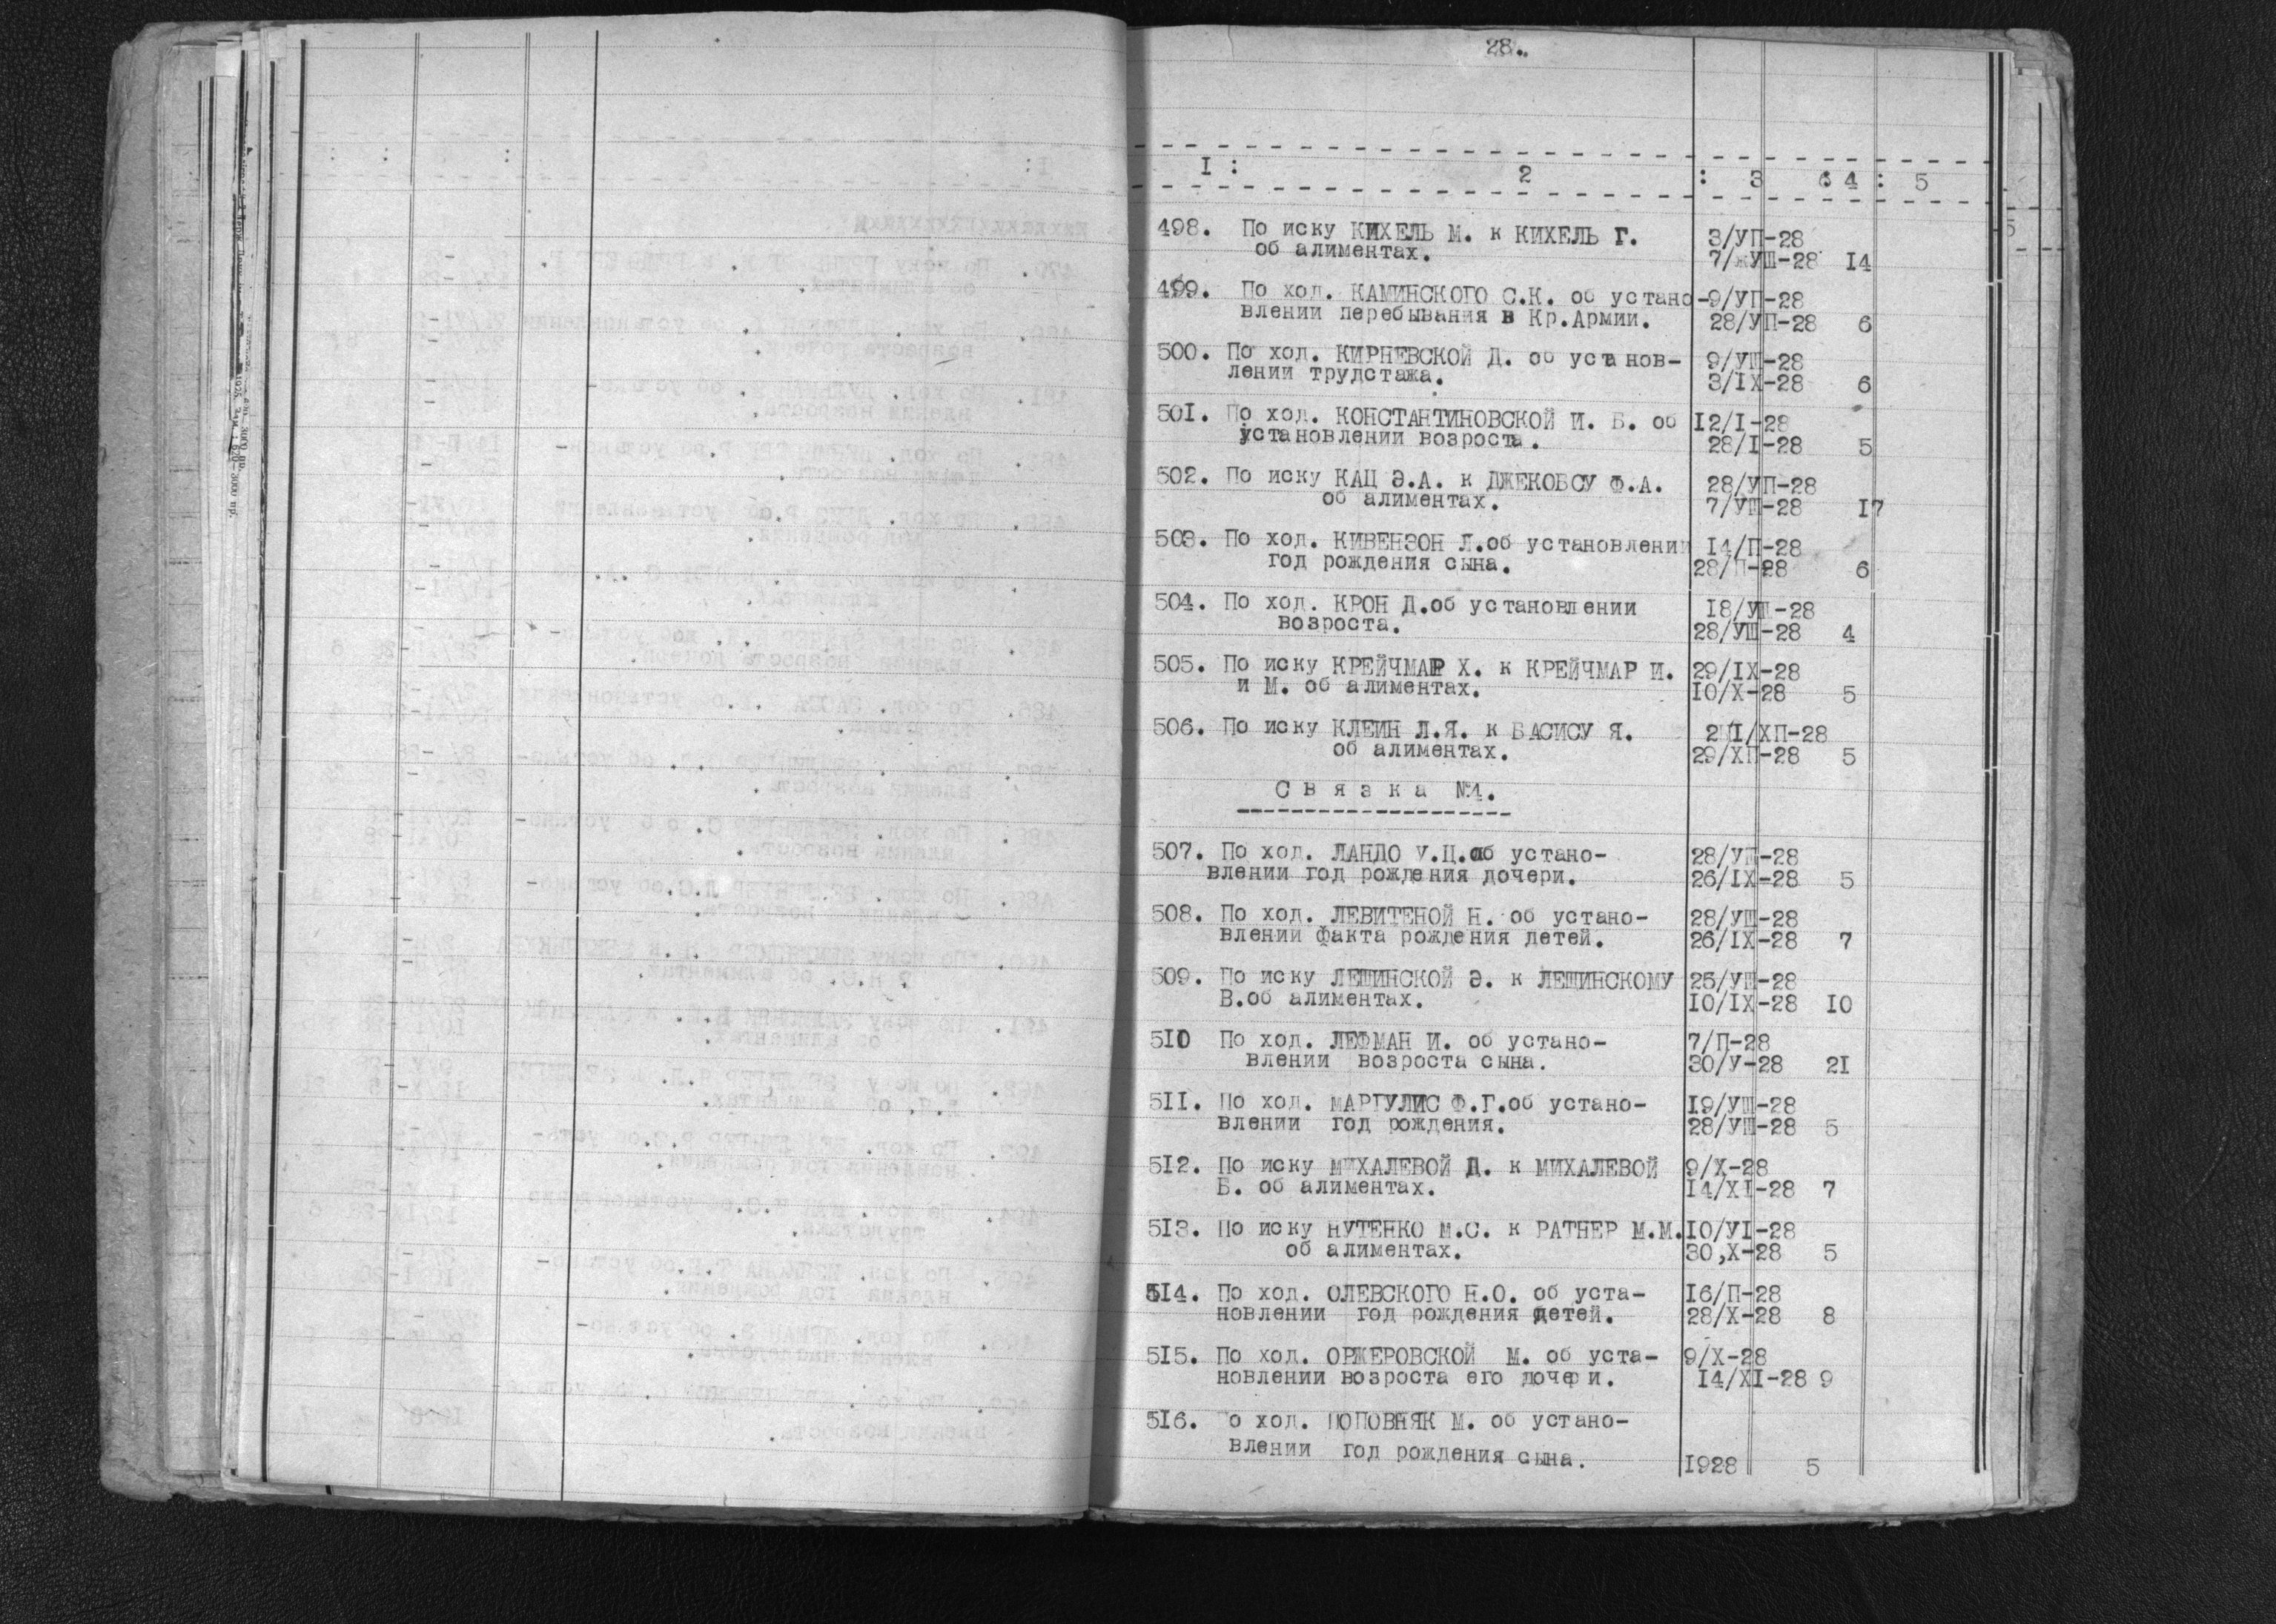 28.
I : 2 : 3 : 4 : 5
498. По иску КИХЕЛЬ М. к КИХЕЛЬ Г. 3/УП-28
об алиментах. 7/УШ-28 14
499. По ход. КАМИНСКОГО С.К. об устано- 9/УП-28
влении перебывания в Кр.Армии. 28/УП-28 6
500. По ход. КИРНЕВСКОЙ Д. об установ- 9/УШ-28
лении трудстажа. 3/IX-28 6
501. По ход. КОНСТАНТИНОВСКОЙ И. Б. об I2/I-28
установлении возроста. 28/I-28 5
502. По иску КАЦ Э.А. к ДЖЕКОБСУ Ф.А. 28/УП-28
об алиментах. 7/УШ-28 I7
503. По ход. КИВЕНЗОН Л.об установлении I4/П-28
год рождения сына. 28/П-28 6
504. По ход. КРОН Д.об установлении I8/УШ-28
возроста. 28/УШ-28 4
505. По иску КРЕЙЧМАР Х. к КРЕЙЧМАР И. 29/IX-28
и М. об алиментах. I0/X-28 5
506. По иску КЛЕИН Л.Я. к БАСИСУ Я. 2I/ХП-28
об алиментах. 29/ХП-28 5
С в я з к а №4.
507. По ход. ЛАНДО У.Ц.об устано- 28/УШ-28
влении год рождения дочери. 26/IX-28 5
508. По ход. ЛЕВИТЕНОЙ Н. об устано- 28/УШ-28
влении факта рождения детей. 26/IX-28 7
509. По иску ЛЕЩИНСКОЙ Э. к ЛЕЩИНСКОМУ 25/УШ-28
В.об алиментах. I0/IX-28 I0
5I0 По ход. ЛЕФМАН И. об устано- 7/П-28
влении возроста сына. 30/У-28 2I
5II. По ход. МАРГУЛИС Ф.Г.об устано- I9/УШ-28
влении год рождения. 28/УШ-28 5
5I2. По иску МИХАЛЕВОЙ Д. к МИХАЛЕВОЙ 9/X-28
Б. об алиментах. I4/XI-28 7
5I3. По иску НУТЕНКО М.С. к РАТНЕР М.М. I0/УI-28
об алиментах. 30,X-28 5
5I4. По ход. ОЛЕВСКОГО Н.О. об уста- I6/П-28
новлении год рождения детей. 28/X-28 8
5I5. По ход. ОРЖЕРОВСКОЙ М. об уста- 9/X-28
новлении возроста его дочери. I4/XI-28 9
5I6. По ход. ПОПОВНЯК М. об устано-
влении год рождения сына. I928 5